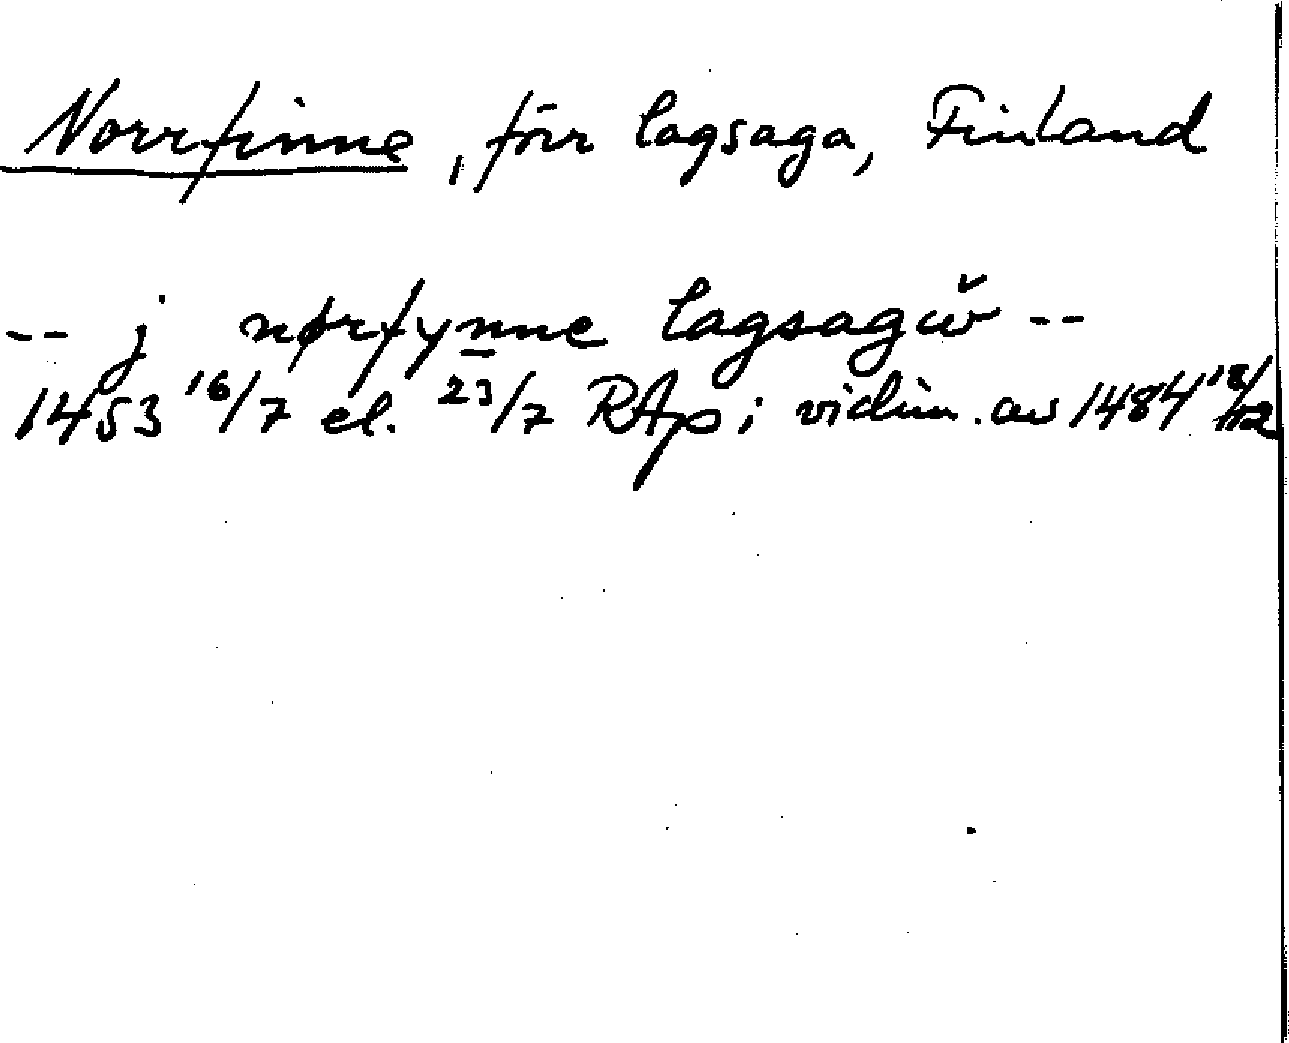 Norrfinne, förr lagsaga, Finland
-- j nørfynne lagsagw̌ --
1453 16/7 el. 23/7 RAp i vidim. av 1484 18/12